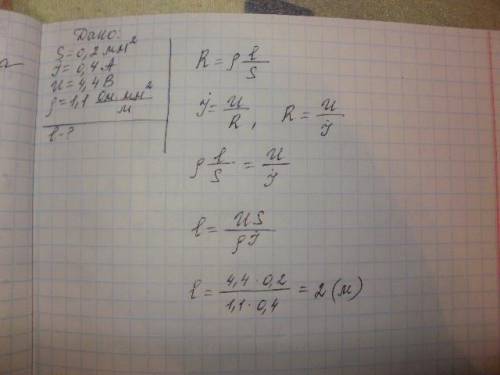 Дано:
S=0,2 мм²
I=0,4 А
U=4,4 В
ρ=1,1 Ом мм²/м
l-?
R=ρ l/S
I=U/R, R=U/I
ρ l/S = U/I
l= US/ρI
l= 4,4·0,2/1,1·0,4 = 2(м)